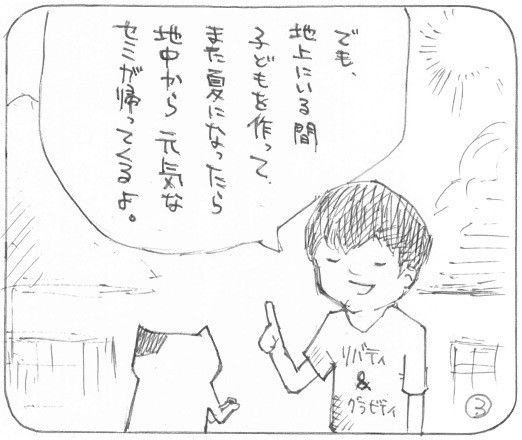 でも、
地上にいる間
子どもを作って、
また夏になったら
地中から元気な
セミが帰ってくるよ。
リバティ
&
グラビティ
3